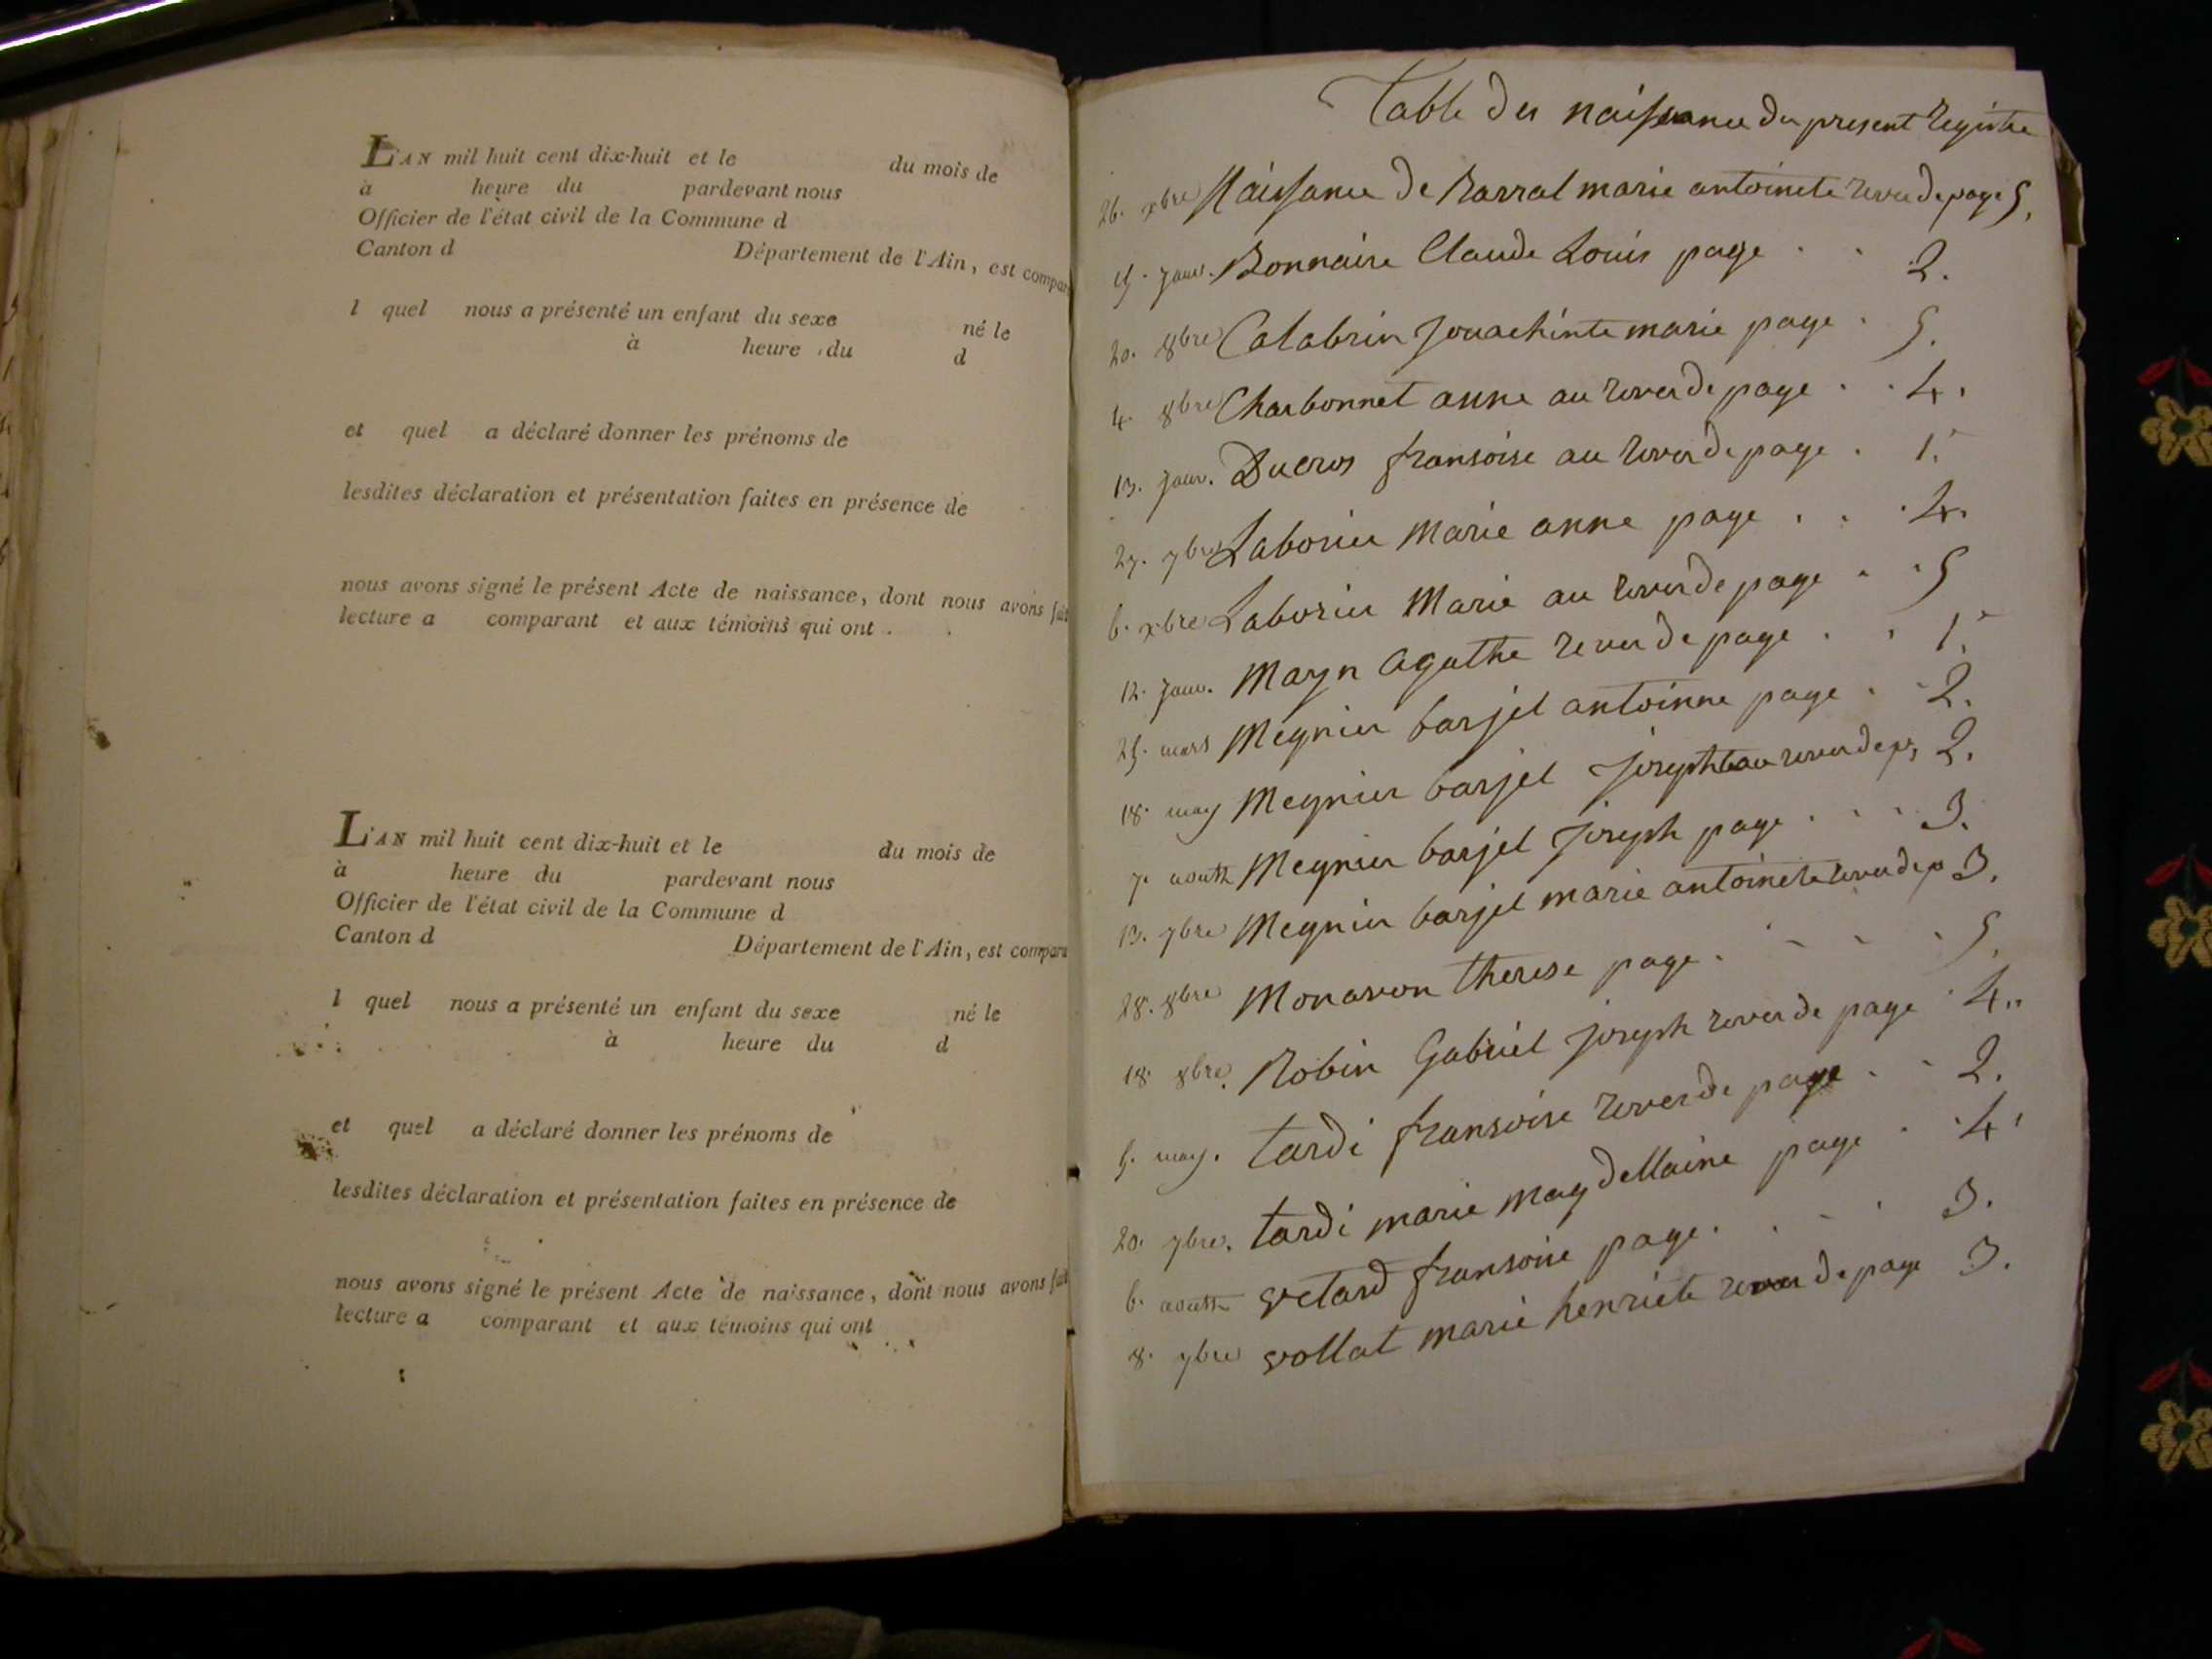 L'AN mil huit cent dix-huit et le du mois de
à heure du pardevant nous
Officier de l'état civil de la Commune d
Canton d Département de l'Ain, est compar
l quel nous a présenté un enfant du sexe né le
à heure du d
et quel a déclaré donner les prénoms de
lesdites déclaration et présentation faites en présence de
nous avons signé le présent Acte de naissance, dont nous avons fait
lecture a comparant et aux témoins qui ont
L'AN mil huit cent dix-huit et le du mois de
à heure du pardevant nous
Officier de l'état civil de la Commune d
Canton d Département de l'Ain, est compara
l quel nous a présenté un enfant du sexe né le
à heure du d
et quel a déclaré donner les prénoms de
lesdites déclaration et présentation faites en présence de
nous avons signé le présent Acte de naissance, dont nous avons fait
lecture a comparant et aux témoins qui ont
Table des naissance du present registre
26. xbre Naissance de Barral marie antoinete rever de page 5.
janv. Bonnaire Claude Louis page . . 2.
20. 8bre Calabrin Jouachinte marie page . 5.
4. 8bre Charbonnet anne au rever de page . . 4.
13. janv. Ducros fransoise au rever de page . 1.
27. 7bre Laborier Marie anne page . . . 4.
6. xbre Laborier Marie au rever de page . . 5
12. janv. Mayn Agathe rever de page . . 1.
25. mars Megnier barjel antoinne page . . 2.
18. may Megnier barjel Joseph au rever de p, 2.
7. aoutt Megnier barjel Joseph page . . . 3.
13. 7bre Megnier barjel marie antoinete rever de p 3.
28. 8bre Monavon therese page . . . . 5.
18 8bre. Robin Gabriel Joseph rever de page . 4.
5. may. tardi fransoise rever de page . . 2.
20. 7bre. tardi marie magdellaine page . . 4.
6. aoutt vetard fransoise page . . . . 3.
8. 7bre vollat marie henriete rever de page 3.